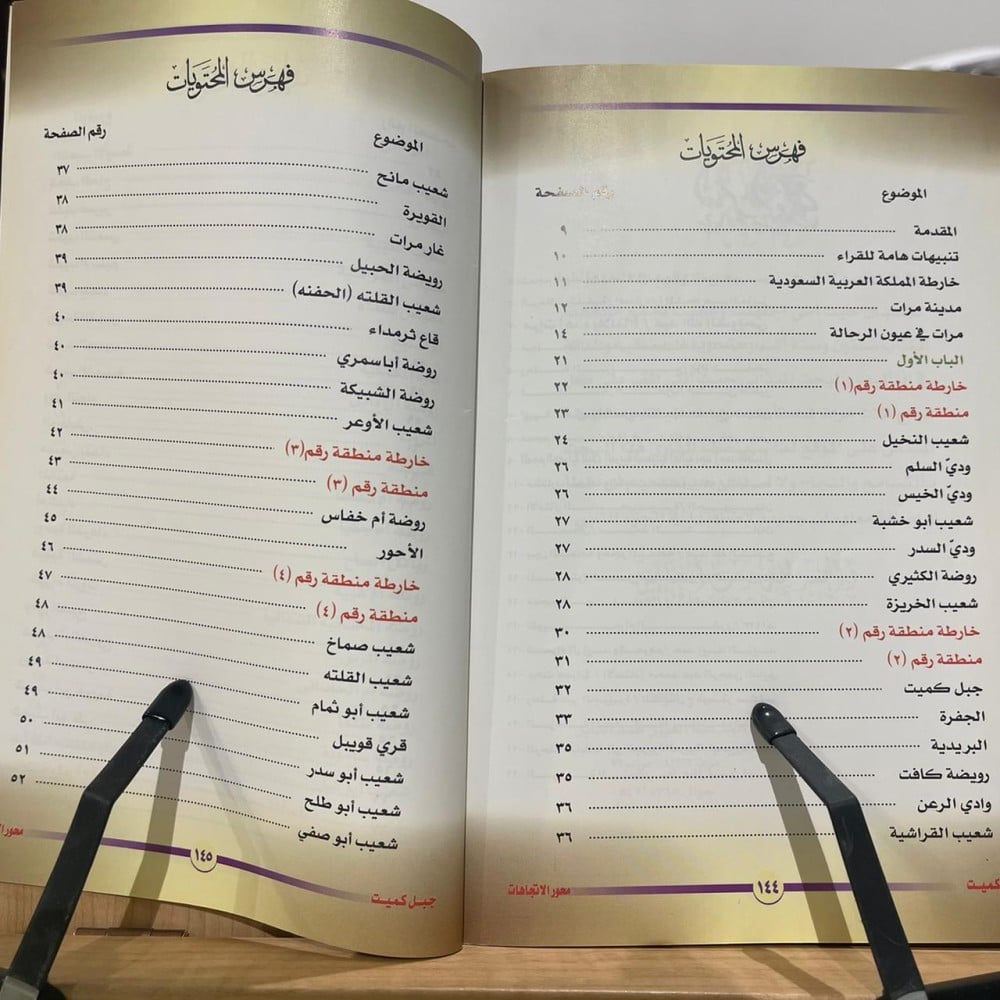 فهرس المحتويات
الموضوع رقم الصفحة
المقدمة ٩
تنبيهات هامة للقراء ١٠
خارطة المملكة العربية السعودية ١١
مدينة مرات ١٢
مرات في عيون الرحالة ١٤
الباب الأول ٢١
خارطة منطقة رقم(١) ٢٢
منطقة رقم (١) ٢٣
شعيب النخيل ٢٤
وديّ السلم ٢٦
وديّ الخيس ٢٦
شعيب أبو خشبة ٢٧
وديّ السدر ٢٧
روضة الكثيري ٢٨
شعيب الخريزة ٢٨
خارطة منطقة رقم (٢) ٣٠
منطقة رقم (٢) ٣١
جبل كميت ٣٢
الجفرة ٣٣
البريدية ٣٥
رويضة كافت ٣٥
وادي الرعن ٣٦
شعيب القراشية ٣٦
كميت ١٤٤ محور الاتجاهات
فهرس المحتويات
الموضوع رقم الصفحة
شعيب مانح ٣٧
القويرة ٣٨
غار مرات ٣٨
رويضة الحبيل ٣٩
شعيب القلته (الحفنه) ٣٩
قاع ثرمداء ٤٠
روضة أباسمري ٤٠
روضة الشبيكة ٤٠
شعيب الأوعر ٤١
خارطة منطقة رقم(٣) ٤٢
منطقة رقم (٣) ٤٣
روضة أم خفاس ٤٤
الأحور ٤٥
خارطة منطقة رقم (٤) ٤٦
منطقة رقم (٤) ٤٧
شعيب صماخ ٤٨
شعيب القلته ٤٨
شعيب أبو ثمام ٤٩
قري قويبل ٤٩
شعيب أبو سدر ٥٠
شعيب أبو طلح ٥١
شعيب أبو صفي ٥٢
جبل كميت ١٤٥ محور